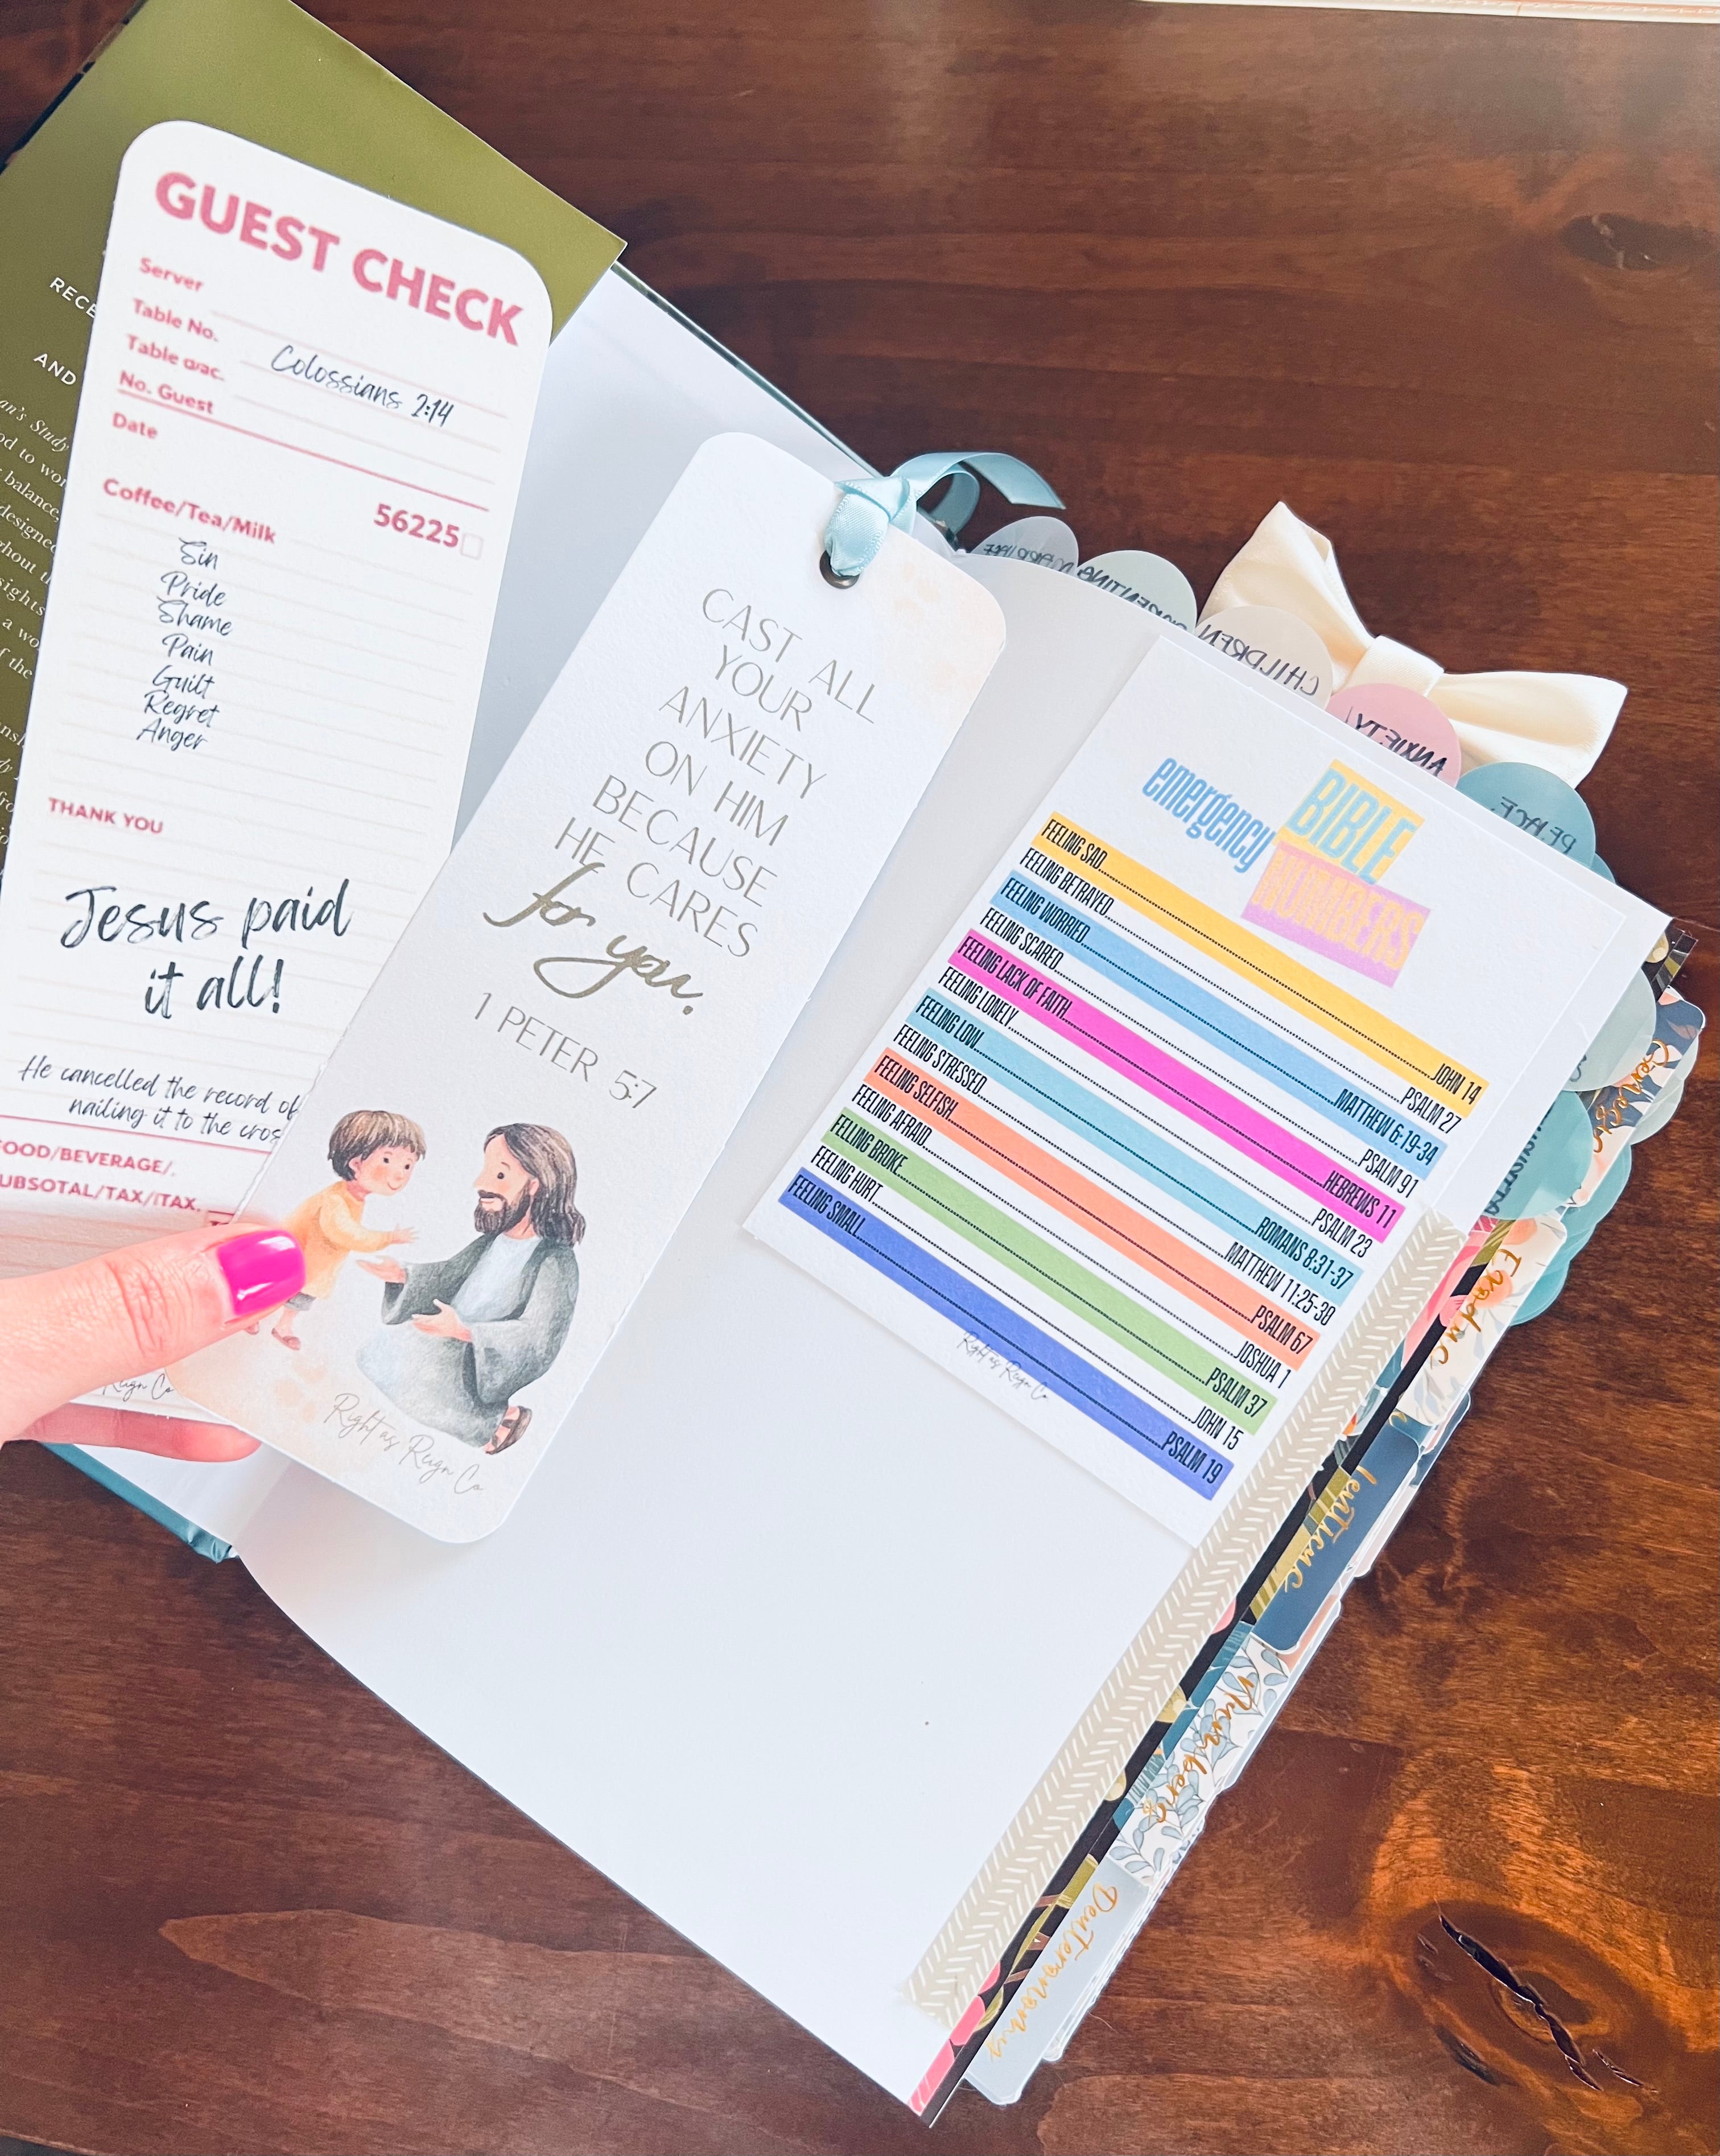 GUEST CHECK
Server
Table No.
Colossians 2:14
Table
No. Guest
Date
Coffee/Tea/Milk
56225
Sin
Pride
Shame
Pain
Guilt
Regret
Anger
THANK YOU
Jesus paid
it all!
He cancelled the record of
nailing it to the
CAST ALL
YOUR
ANXIETY
ON HIM
BECAUSE
HE CARES
for you.
1 PETER 5:7
Right as Reign Co
emergency
BIBLE
NUMBERS
FEELING SAD JOHN 14
FEELING BETRAYED PSALM 27
FEELING WORRIED MATTHEW 6:19-34
FEELING SCARED PSALM 91
FEELING LACK OF FAITH HEBREWS 11
FEELING LONELY PSALM 23
FEELING LOW ROMANS 8:31-37
FEELING STRESSED MATTHEW 11:25-30
FEELING SELFISH PSALM 67
FEELING AFRAID JOSHUA 1
FELLING BROKE PSALM 37
FEELING HURT JOHN 15
FEELING SMALL PSALM 19
Right as Reign Co
PARENTING
CHILDREN
ANXIETY/
PEACE
Genesis
Exodus
Leviticus
Numbers
Deuteronomy
AND
Study
balance,